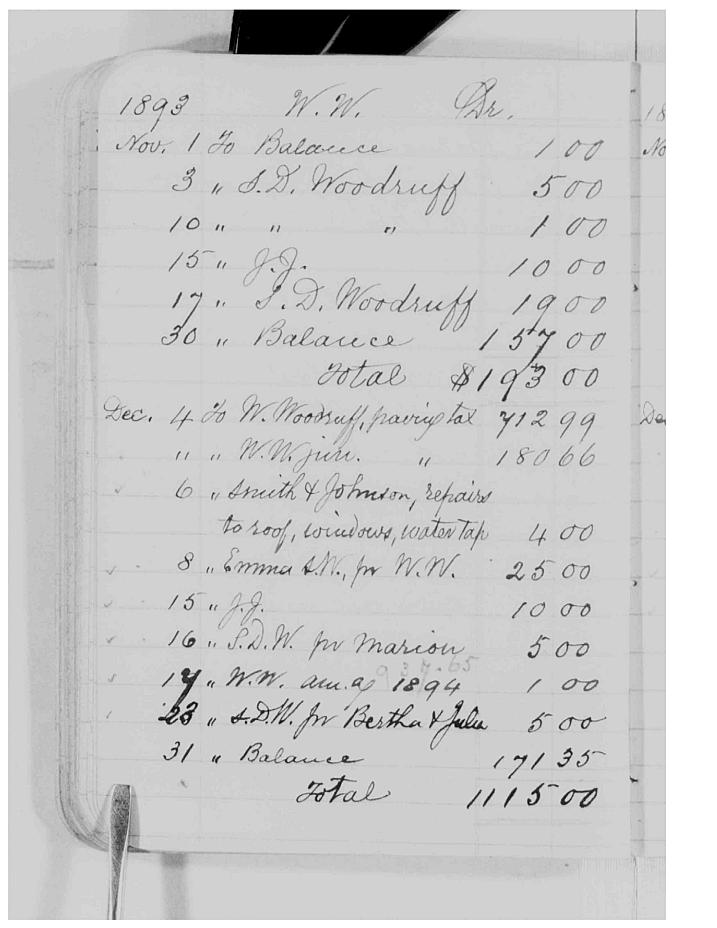 1893 W. W. Dr.
Nov. 1 To Balance 1 00
3 " S. D. Woodruff 5 00
10 " " " 1 00
15 " J. J. 10 00
17 " S. D. Woodruff 19 00
30 " Balance 157 00
Total $193 00
Dec. 4 To W. Woodruff, paving tax 712 99
" " W. W. jun. " 180 66
6 " Smith & Johnson, repairs
to roof, windows, water tap 4 00
8 " Emma S. W., pr W. W. 25 00
15 " J. J. 10 00
16 " S. D. W. pr Marion 5 00
937.65
17 " W. W. 1894 1 00
23 " S. D. W. pr Bertha & Julia 5 00
31 " Balance 171 35
Total 1115 00
18
No
Dec